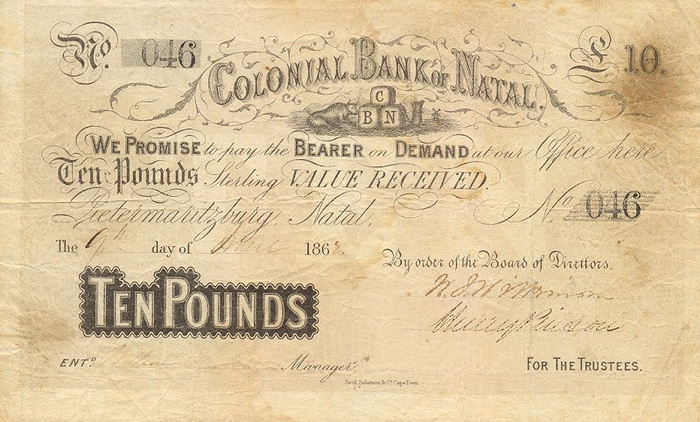 No. 046
£ 10.
COLONIAL BANK OF NATAL.
C
B N
WE PROMISE to pay the BEARER on DEMAND at our Office here
Ten Pounds Sterling VALUE RECEIVED.
Pietermaritzburg. Natal. No 046
The 9th day of 1862
By order of the Board of Directors.
TEN POUNDS
Henry
ENTD Manager.
FOR THE TRUSTEES.
Saul Solomon & Co. Cape Town.